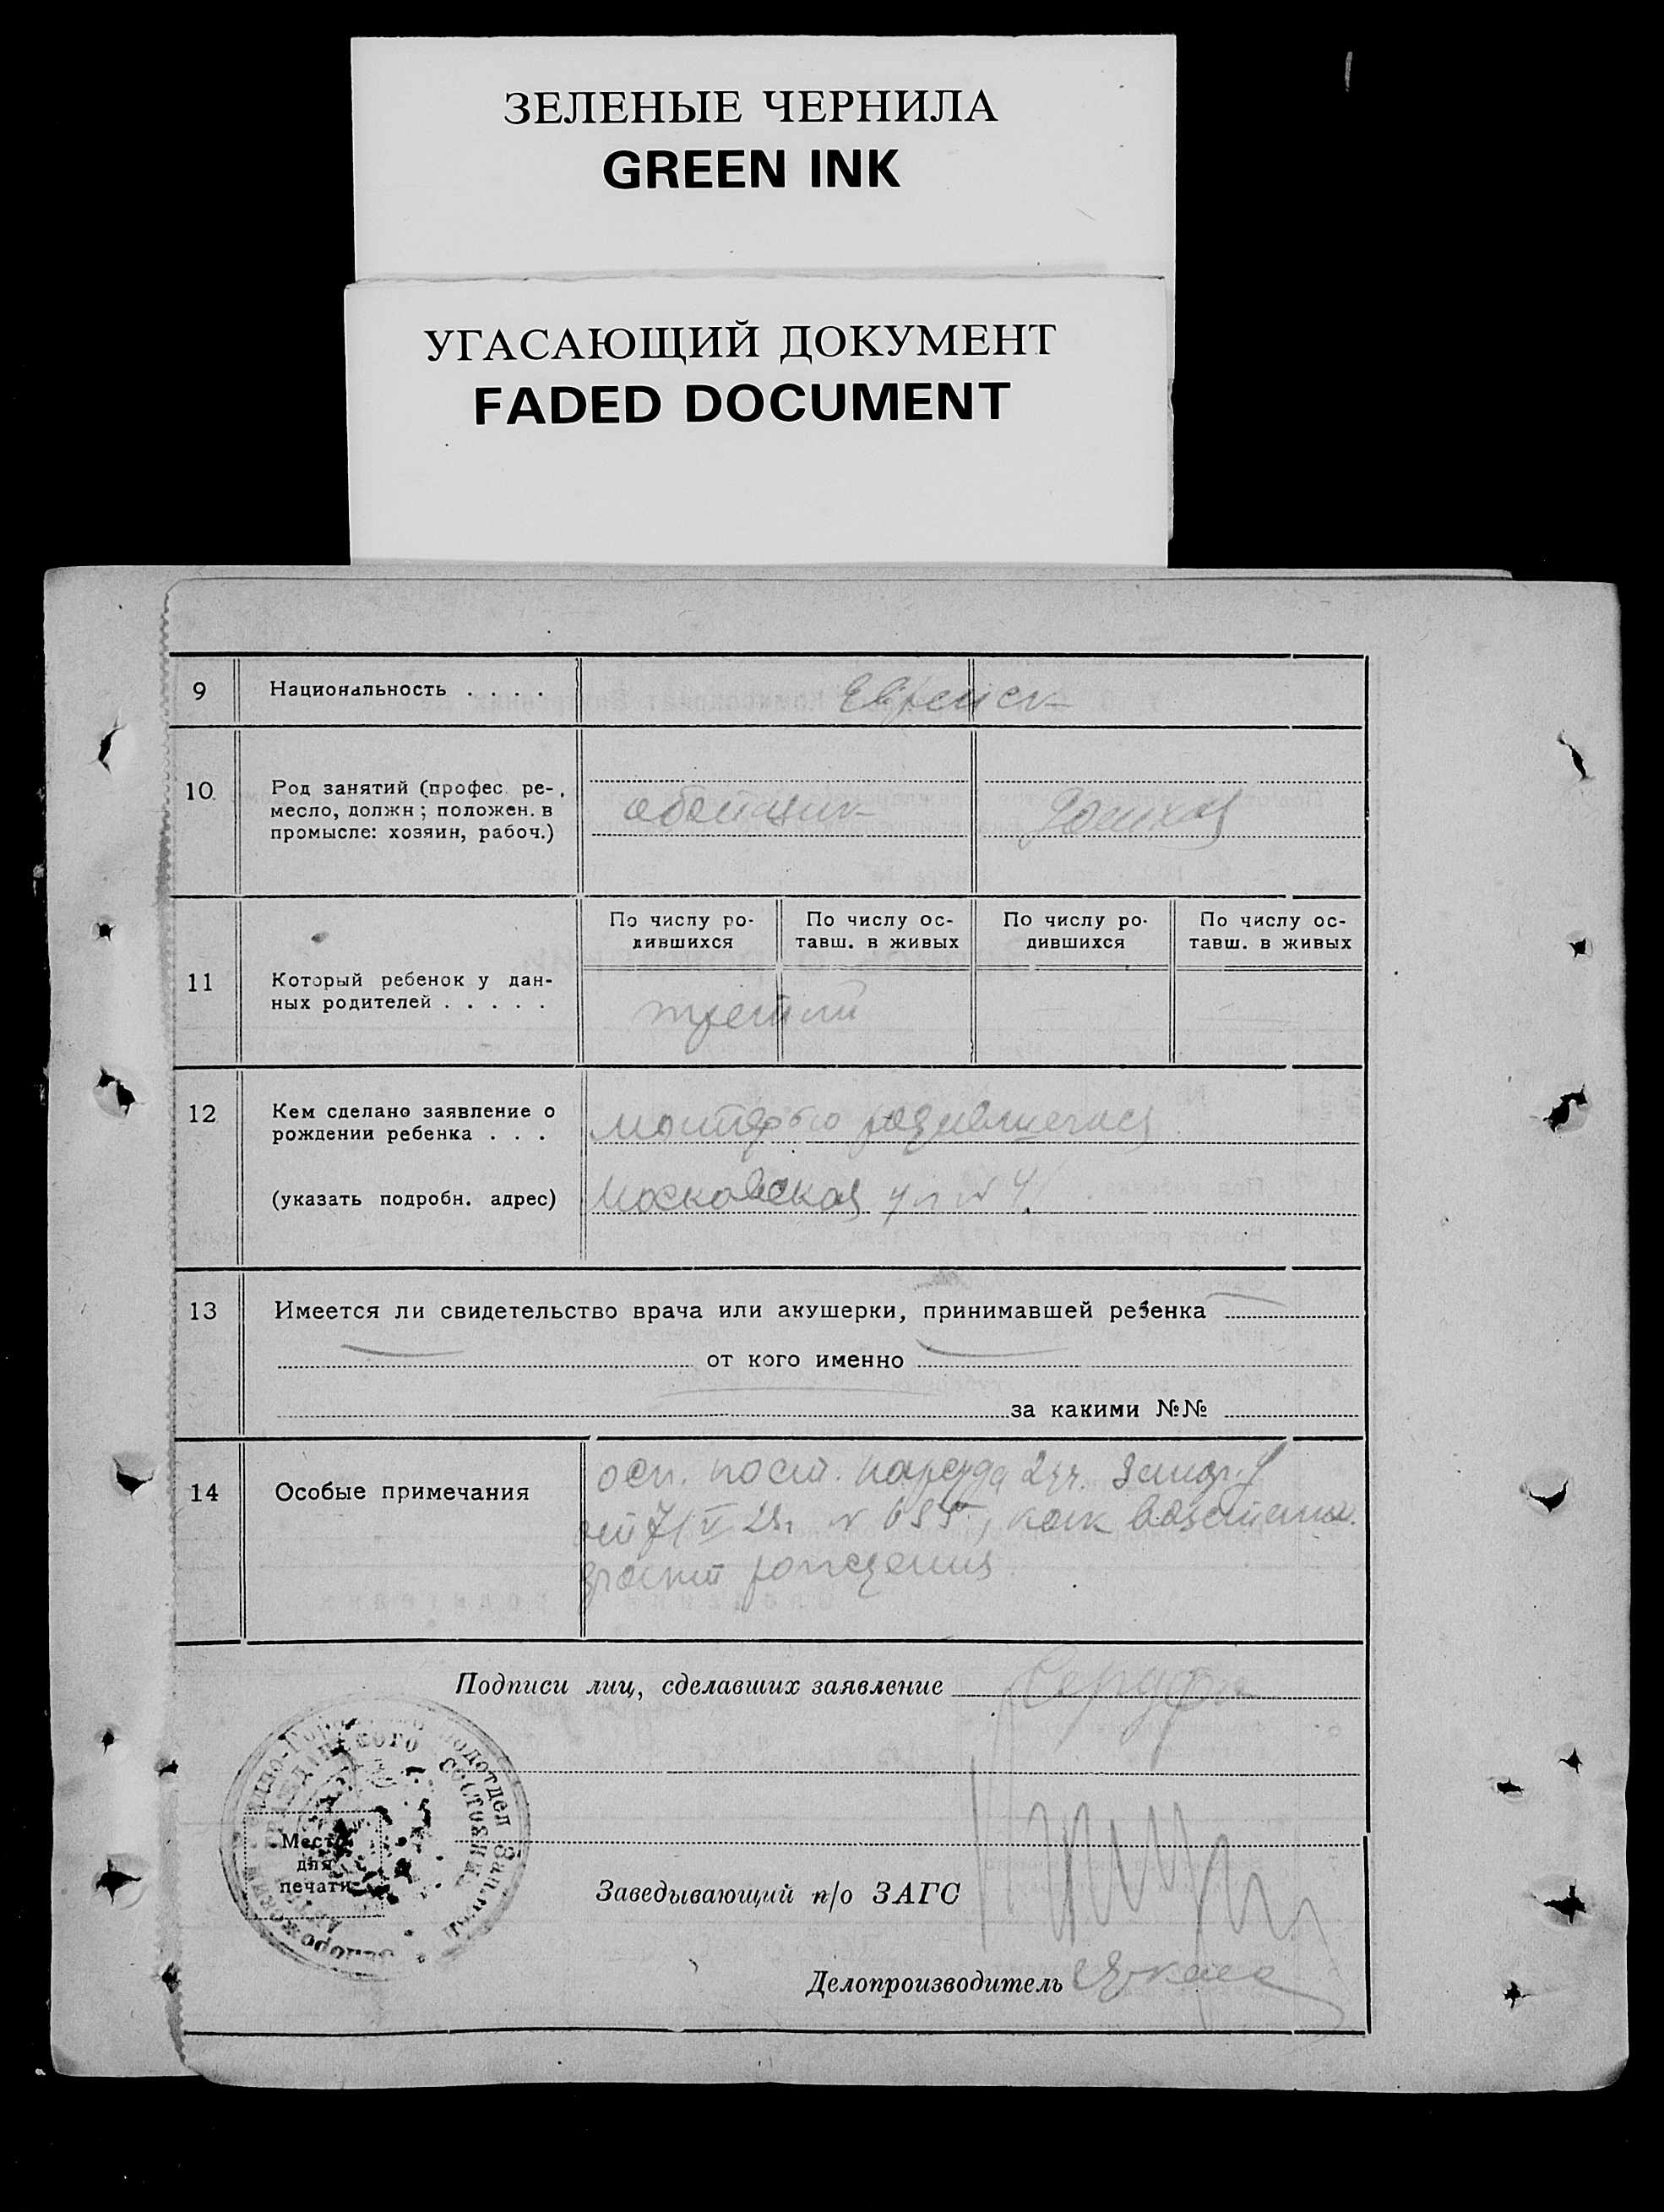 ЗЕЛЕНЫЕ ЧЕРНИЛА
GREEN INK
УГАСАЮЩИЙ ДОКУМЕНТ
FADED DOCUMENT
9 Национальность . . . . Еврейск
10 Род занятий (профес. ре-
месло, должн; положен. в
промысле: хозяин, рабоч.)
обойщик
11 Который ребенок у дан-
ных родителей . . . . .
По числу ро-
дившихся
По числу ос-
тавш. в живых
По числу ро-
дившихся
По числу ос-
тавш. в живых
третий
12 Кем сделано заявление о
рождении ребенка . . .
матерью родившегося
(указать подробн. адрес) Московская ул № 4
13 Имеется ли свидетельство врача или акушерки, принимавшей ребенка
от кого именно
за какими №№
14 Особые примечания
осн. пост. нарсуда 2 уч. Запор.
от 7/V 23г. № 655, как восстановл.
рождения
Подписи лиц, сделавших заявление
Место
для
печати
Заведывающий п/о ЗАГС
Делопроизводитель